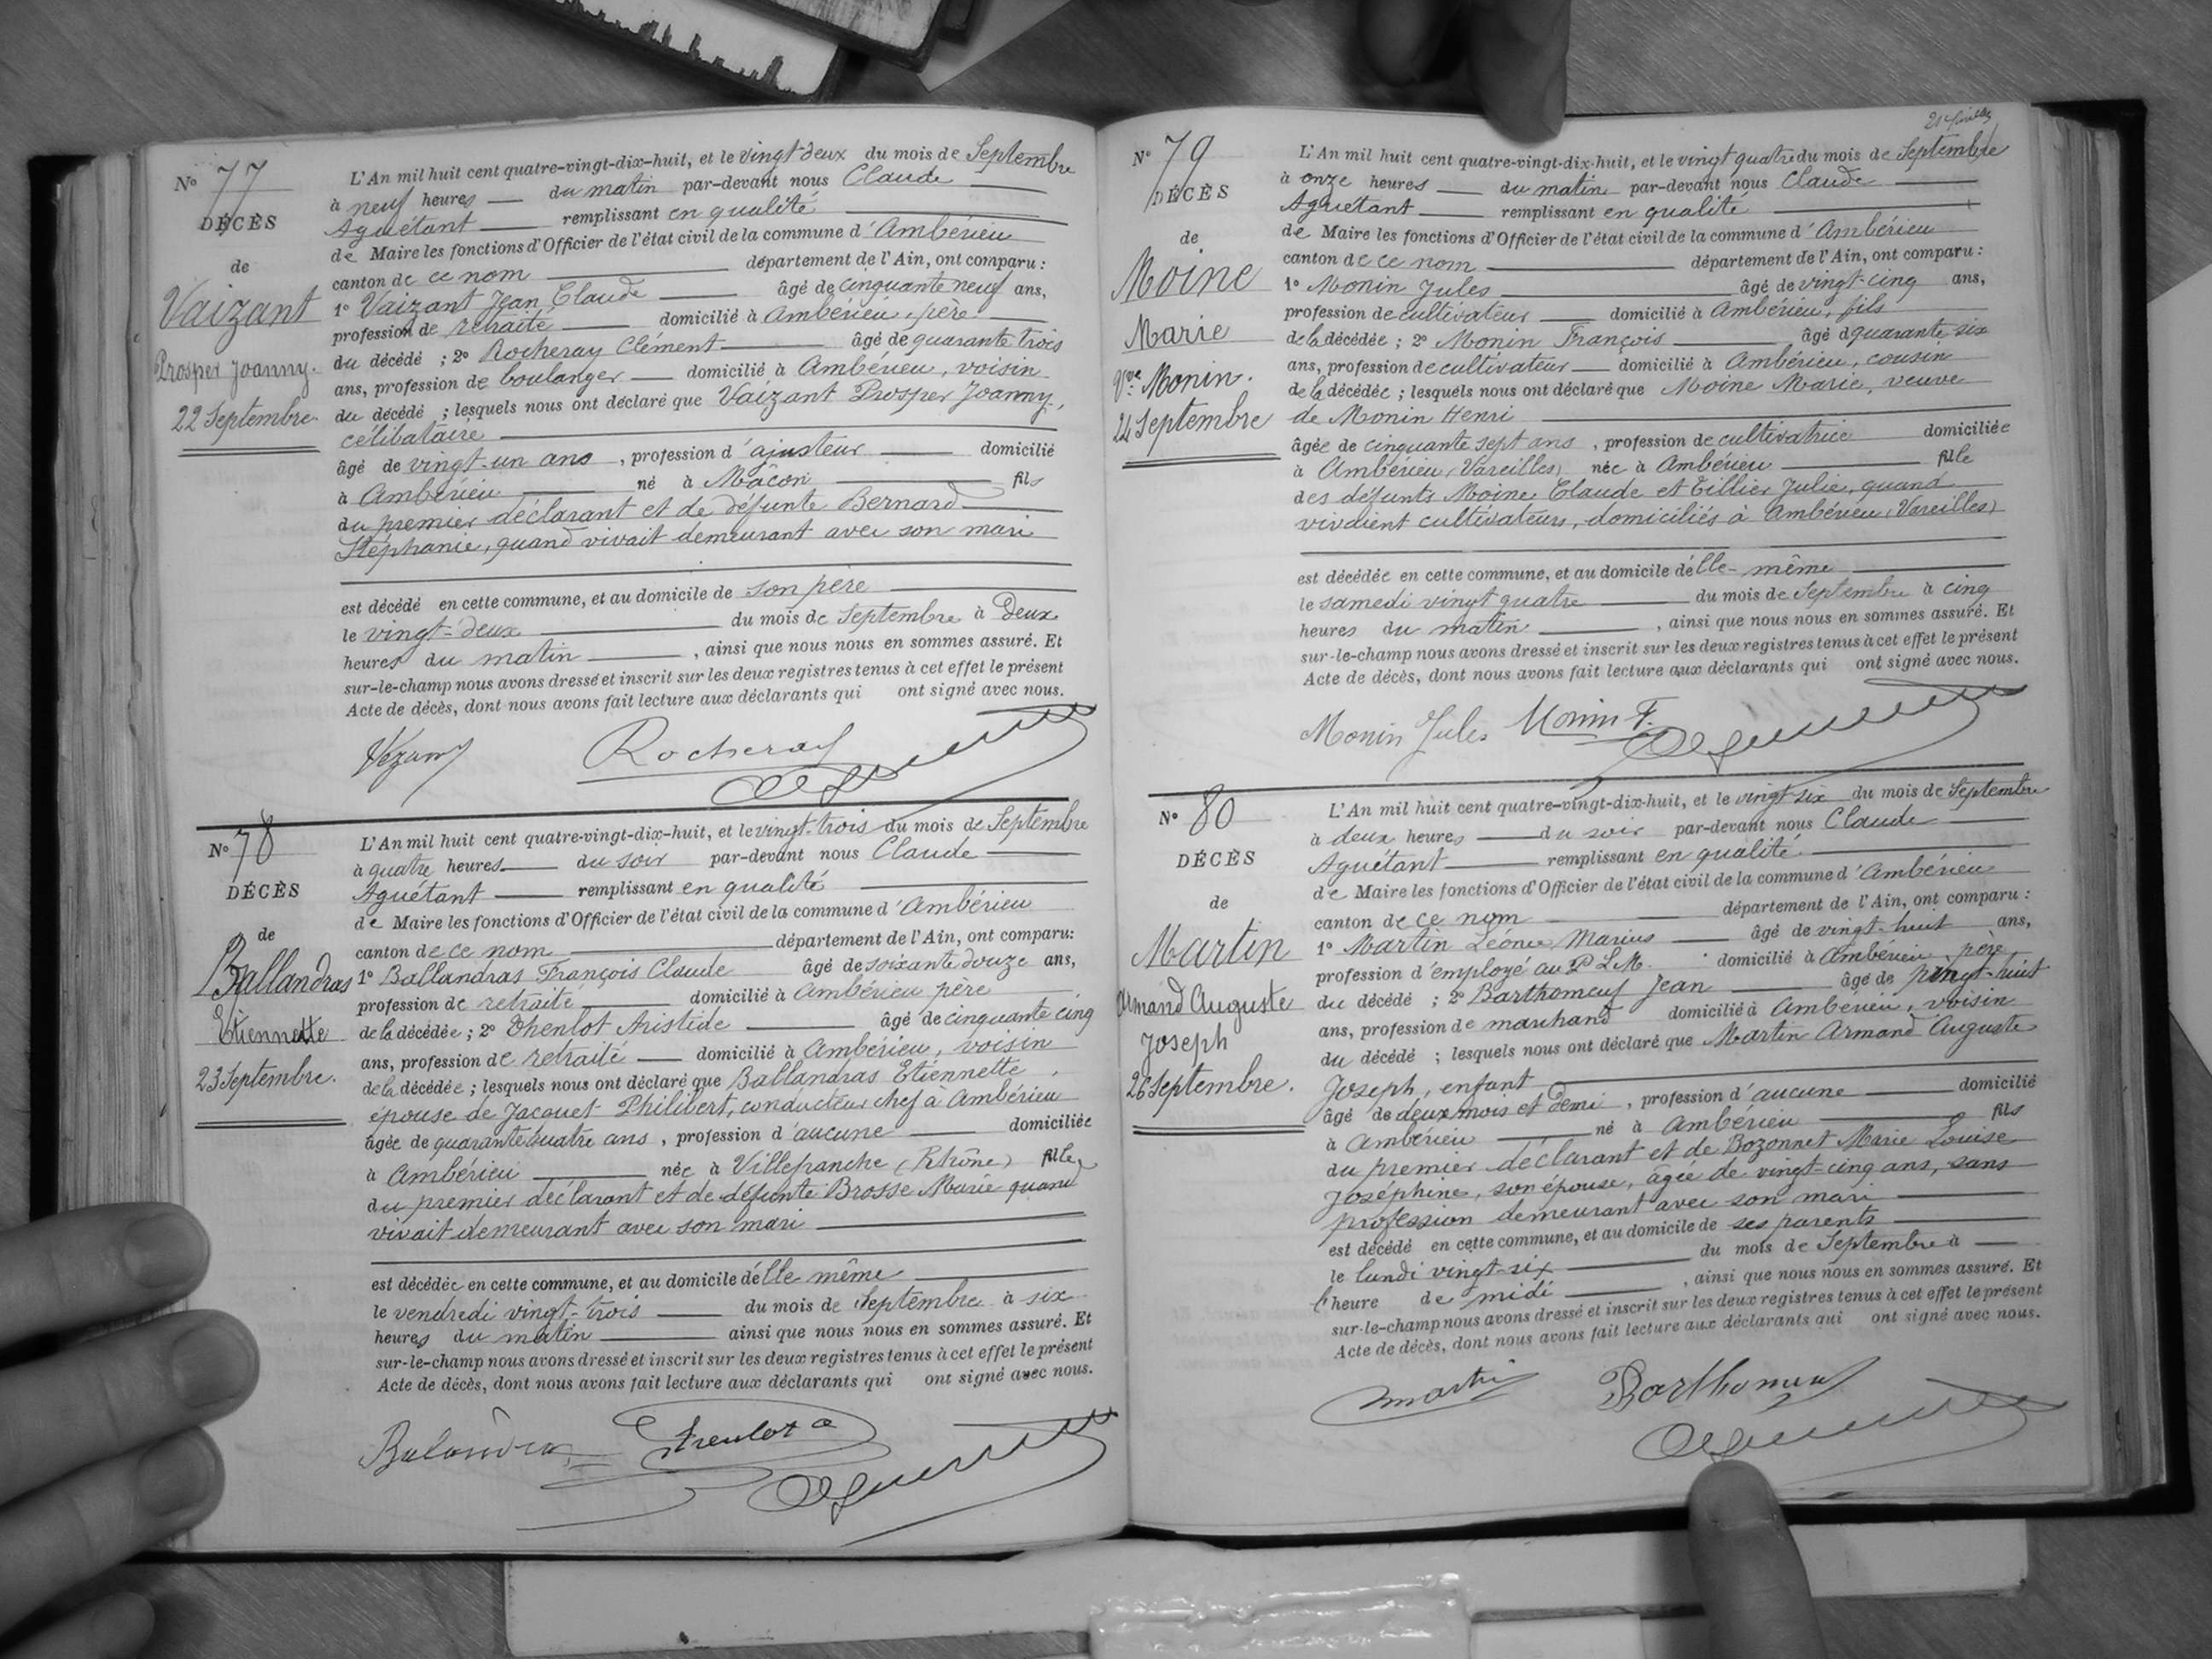 N° 77
DÉCÈS
de
Vaizant
Prosper Joanny.
22 Septembre.
L'An mil huit cent quatre-vingt-dix-huit, et le vingt-deux du mois de Septembre
à neuf heures du matin par-devant nous Claude
Aguétant remplissant en qualité
de Maire les fonctions d'Officier de l'état civil de la commune d'Ambérieu
canton de ce nom département de l'Ain, ont comparu :
1° Vaizant Jean Claude âgé de cinquante neuf ans,
profession de retraité domicilié à Ambérieu, père
du décédé ; 2° Rocheray Clément âgé de quarante trois
ans, profession de boulanger domicilié à Ambérieu, voisin
du décédé ; lesquels nous ont déclaré que Vaizant Prosper Joanny,
célibataire
âgé de vingt-un ans, profession d'ajusteur domicilié
à Ambérieu né à Mâcon fils
du premier déclarant et de défunte Bernard
Stéphanie, quand vivait demeurant avec son mari
est décédé en cette commune, et au domicile de son père
le vingt-deux du mois de Septembre à deux
heures du matin, ainsi que nous nous en sommes assuré. Et
sur-le-champ nous avons dressé et inscrit sur les deux registres tenus à cet effet le présent
Acte de décès, dont nous avons fait lecture aux déclarants qui ont signé avec nous.
Rocheray
N° 78
DÉCÈS
de
Ballandras
Etiennette
23 Septembre.
L'An mil huit cent quatre-vingt-dix-huit, et le vingt-trois du mois de Septembre
à quatre heures du soir par-devant nous Claude
Aguétant remplissant en qualité
de Maire les fonctions d'Officier de l'état civil de la commune d'Ambérieu
canton de ce nom département de l'Ain, ont comparu:
1° Ballandras François Claude âgé de soixante douze ans,
profession de retraité domicilié à Ambérieu père
de la décédée ; 2° Thenlot Aristide âgé de cinquante cinq
ans, profession de retraité domicilié à Ambérieu, voisin
de la décédée ; lesquels nous ont déclaré que Ballandras Etiennette,
épouse de Jacquet Philibert, conducteur chef à Ambérieu
âgée de quarante quatre ans, profession d'aucune domiciliée
à Ambérieu née à Villefranche (Rhône) fille
du premier déclarant et de défunte Brosse Marie quand
vivait demeurant avec son mari
est décédée en cette commune, et au domicile d'elle même
le vendredi vingt-trois du mois de Septembre à six
heures du matin ainsi que nous nous en sommes assuré. Et
sur-le-champ nous avons dressé et inscrit sur les deux registres tenus à cet effet le présent
Acte de décès, dont nous avons fait lecture aux déclarants qui ont signé avec nous.
21e feuillet
N° 79
DÉCÈS
de
Moine
Marie
Vve Monin.
24 Septembre
L'An mil huit cent quatre-vingt-dix-huit, et le vingt quatre du mois de Septembre
à onze heures du matin par-devant nous Claude
Aguétant remplissant en qualité
de Maire les fonctions d'Officier de l'état civil de la commune d'Ambérieu
canton de ce nom département de l'Ain, ont comparu :
1° Monin Jules âgé de vingt-cinq ans,
profession de cultivateur domicilié à Ambérieu, fils
de la décédée ; 2° Monin François âgé de quarante six
ans, profession de cultivateur domicilié à Ambérieu, cousin
de la décédée ; lesquels nous ont déclaré que Moine Marie, veuve
de Monin Henri
âgée de cinquante sept ans, profession de cultivatrice domiciliée
à Ambérieu (Vareilles) née à Ambérieu fille
des défunts Moine Claude et Tillier Julie, quand
vivaient cultivateurs, domiciliés à Ambérieu (Vareilles)
est décédée en cette commune, et au domicile d'elle-même
le samedi vingt quatre du mois de Septembre à cinq
heures du matin, ainsi que nous nous en sommes assuré. Et
sur-le-champ nous avons dressé et inscrit sur les deux registres tenus à cet effet le présent
Acte de décès, dont nous avons fait lecture aux déclarants qui ont signé avec nous.
Monin Jules Monin F.
N° 80
DÉCÈS
de
Martin
Armand Auguste
Joseph
26 Septembre.
L'An mil huit cent quatre-vingt-dix-huit, et le vingt-six du mois de Septembre
à deux heures du soir par-devant nous Claude
Aguétant remplissant en qualité
de Maire les fonctions d'Officier de l'état civil de la commune d'Ambérieu
canton de ce nom département de l'Ain, ont comparu :
1° Martin Léonce Marius âgé de vingt-huit ans,
profession d'employé au P L M. domicilié à Ambérieu, père
du décédé ; 2° Barthomeuf Jean âgé de vingt-huit
ans, profession de marchand domicilié à Ambérieu, voisin
du décédé ; lesquels nous ont déclaré que Martin Armand Auguste
Joseph, enfant
âgé de deux mois et demi, profession d'aucune domicilié
à Ambérieu né à Ambérieu fils
du premier déclarant et de Bozonnet Marie Louise
Joséphine, son épouse, âgée de vingt-cinq ans, sans
profession demeurant avec son mari
est décédé en cette commune, et au domicile de ses parents
le lundi vingt-six du mois de Septembre à
l'heure de midi, ainsi que nous nous en sommes assuré. Et
sur-le-champ nous avons dressé et inscrit sur les deux registres tenus à cet effet le présent
Acte de décès, dont nous avons fait lecture aux déclarants qui ont signé avec nous.
Martin Barthomeuf